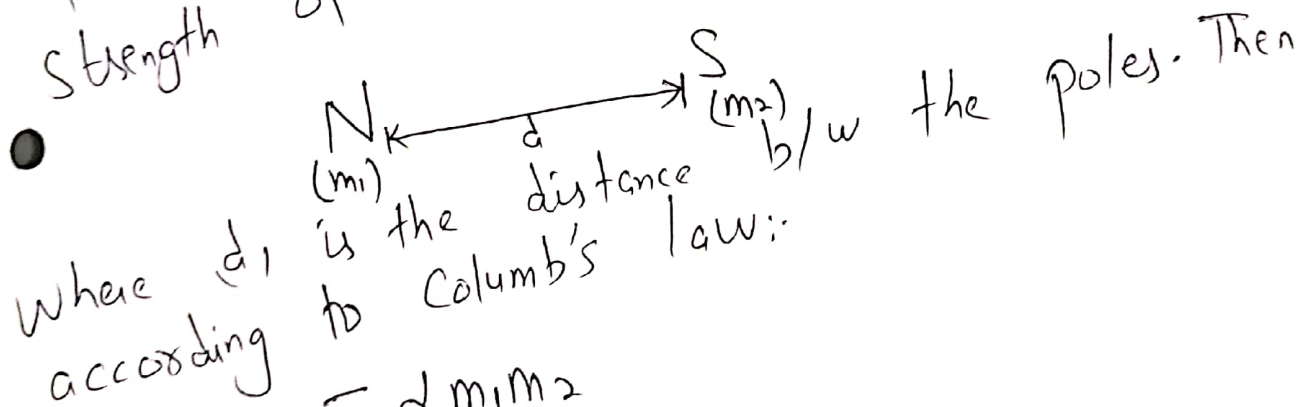 Strength
N S
(m1) d (m2)
where 'd' is the distance b/w the poles. Then
according to Columb's law:-
α m1m2